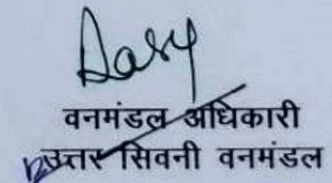 वनमंडल अधिकारी
उत्तर सिवनी वनमंडल